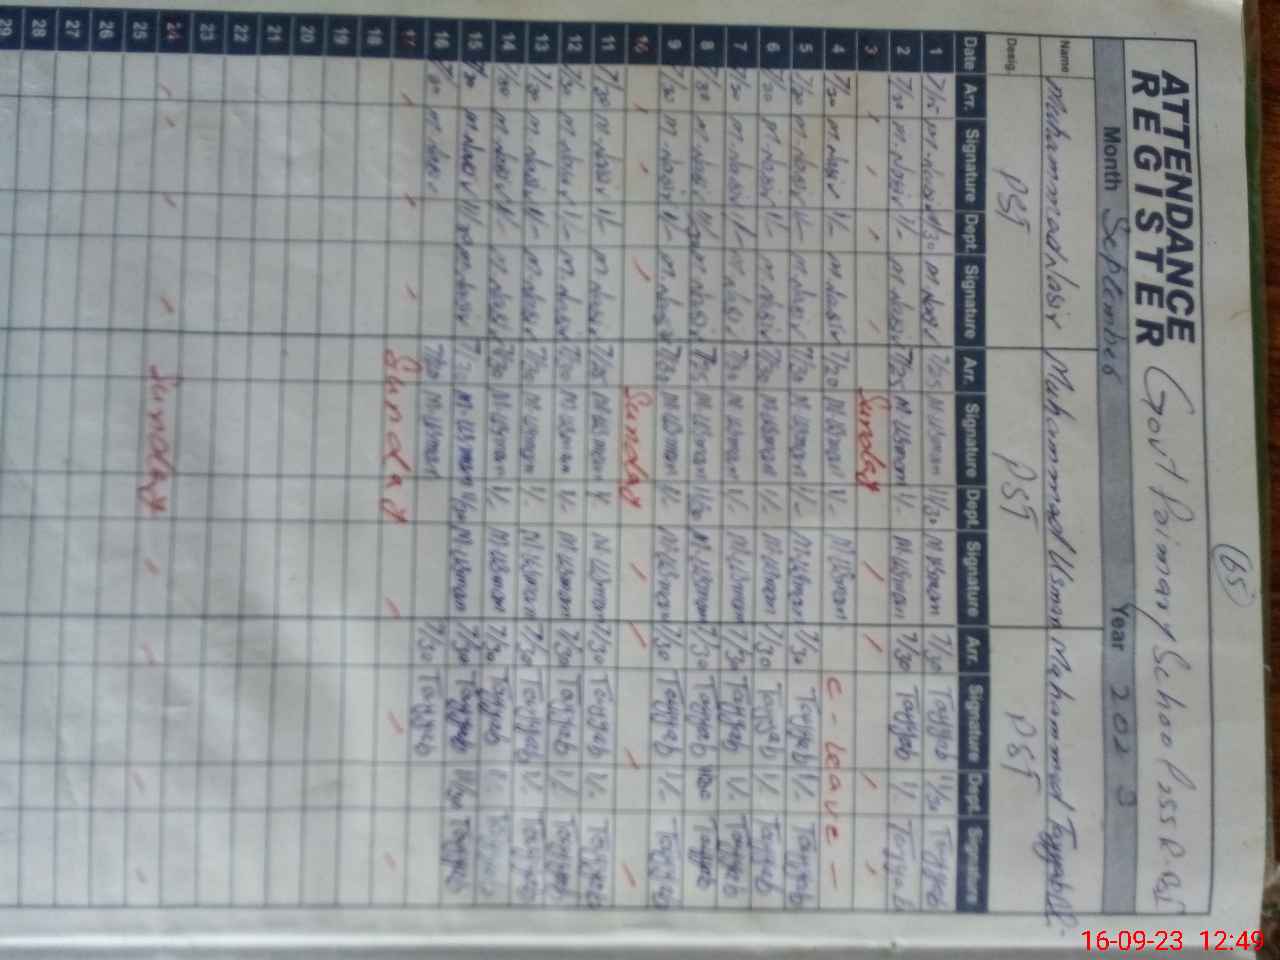 65
ATTENDANCE REGISTER Govt Primary School
Month September Year 2023
Name Muhammad Nasir Muhammad Usman Muhammad Tayyab
Desig. PST PST PST
Date Arr. Signature Dept. Signature Arr. Signature Dept. Signature Arr. Signature Dept. Signature
1 7/15 M.Nasir 11/30 M.Nasir 7/25 M.Usman 11/30 M.Usman 7/30 Tayyab 11/30 Tayyab
2 7/30 M.Nasir 1/- M.Nasir 7/25 M.Usman 1/- M.Usman 7/30 Tayyab 1/- Tayyab
3 Sunday
4 7/30 M.Nasir 1/- M.Nasir 7/20 M.Usman 1/- M.Usman C-Leave-
5 7/30 M.Nasir 1/- M.Nasir 7/30 M.Usman 1/- M.Usman 7/30 Tayyab 1/- Tayyab
6 7/30 M.Nasir 1/- M.Nasir 7/30 M.Usman 1/- M.Usman 7/30 Tayyab 1/- Tayyab
7 7/30 M.Nasir 1/- M.Nasir 7/30 M.Usman 1/- M.Usman 7/30 Tayyab 1/- Tayyab
8 7/30 M.Nasir M.Nasir 7/25 M.Usman 11/30 M.Usman 7/30 Tayyab Tayyab
9 7/30 M.Nasir 1/- M.Nasir 7/30 M.Usman 1/- M.Usman 7/30 Tayyab 1/- Tayyab
10 Sunday
11 7/30 M.Nasir 1/- M.Nasir 7/25 M.Usman 1/- M.Usman 7/30 Tayyab 1/- Tayyab
12 7/30 M.Nasir 1/- M.Nasir 7/30 M.Usman 1/- M.Usman 7/30 Tayyab 1/- Tayyab
13 7/30 M.Nasir 1/- M.Nasir 7/30 M.Usman 1/- M.Usman 7/30 Tayyab 1/- Tayyab
14 7/30 M.Nasir 1/- M.Nasir 7/30 M.Usman 1/- M.Usman 7/30 Tayyab 1/-
15 7/30 M.Nasir 11/30 M.Nasir 7/30 M.Usman 11/30 M.Usman 7/30 Tayyab 11/30 Tayyab
16 7/30 M.Nasir 7/30 M.Usman 7/30 Tayyab
17 Sunday
18
19
20
21
22
23
24 Sunday
25
26
27
28
29
16-09-23 12:49